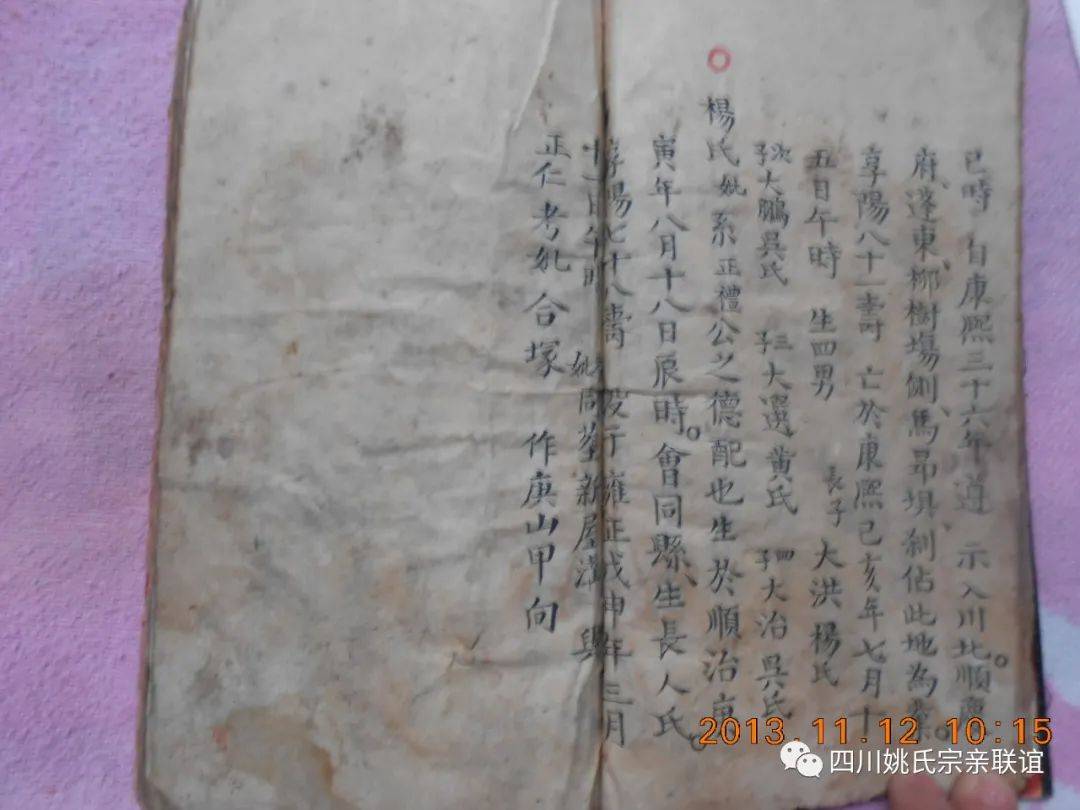 巳時 自康熙三十六年遵 示入川北順慶
府蓬東柳樹塲側馬昻垻刹佔此地為業
享陽八十一壽 亡於康熙己亥年七月十
五日午時 生四男 長子大洪楊氏
次子大鵬吳氏 三子大選黄氏 四子大治吳氏
楊氏妣系正禮公之德配也生於順治庚
寅年八月十八日辰時會同縣生長人氏
享陽七十八壽 殁于雍正戊申年三月
十一日午時 妣同塟新屋溝與
正仁考妣合塚 作庚山甲向
2013.11.12 10:15
四川姚氏宗亲联谊